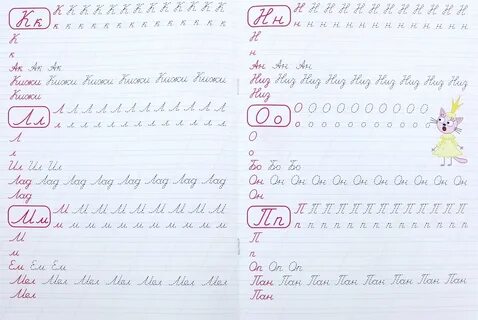 Кк
К К К К К К К К К К К К К
к к к к к к к к к к к к к
К
к
Ак Ак Ак
Кижи Кижи Кижи Кижи Кижи
Кижи
Лл
Л Л Л Л Л Л Л Л Л Л Л
л л л л л л л л л л л
Л
л
Ил Ил Ил
Лад Лад Лад Лад Лад Лад Лад
Лад
Мм
М М М М М М М М М М
м м м м м м м м м м
М
м
Ем Ем Ем
Мел Мел Мел Мел Мел Мел
Мел
Нн
Н Н Н Н Н Н Н Н Н Н Н
н н н н н н н н н н н
Н
н
Ан Ан Ан
Низ Низ Низ Низ Низ Низ Низ Низ
Низ
Оо
О О О О О О О О О О
о о о о о о о о о о
О
о
Бо Бо Бо
Он Он Он Он Он Он Он Он Он Он
Он
Пп
П П П П П П П П П П П
п п п п п п п п п п п
П
п
Оп Оп Оп
Пан Пан Пан Пан Пан Пан Пан Пан
Пан